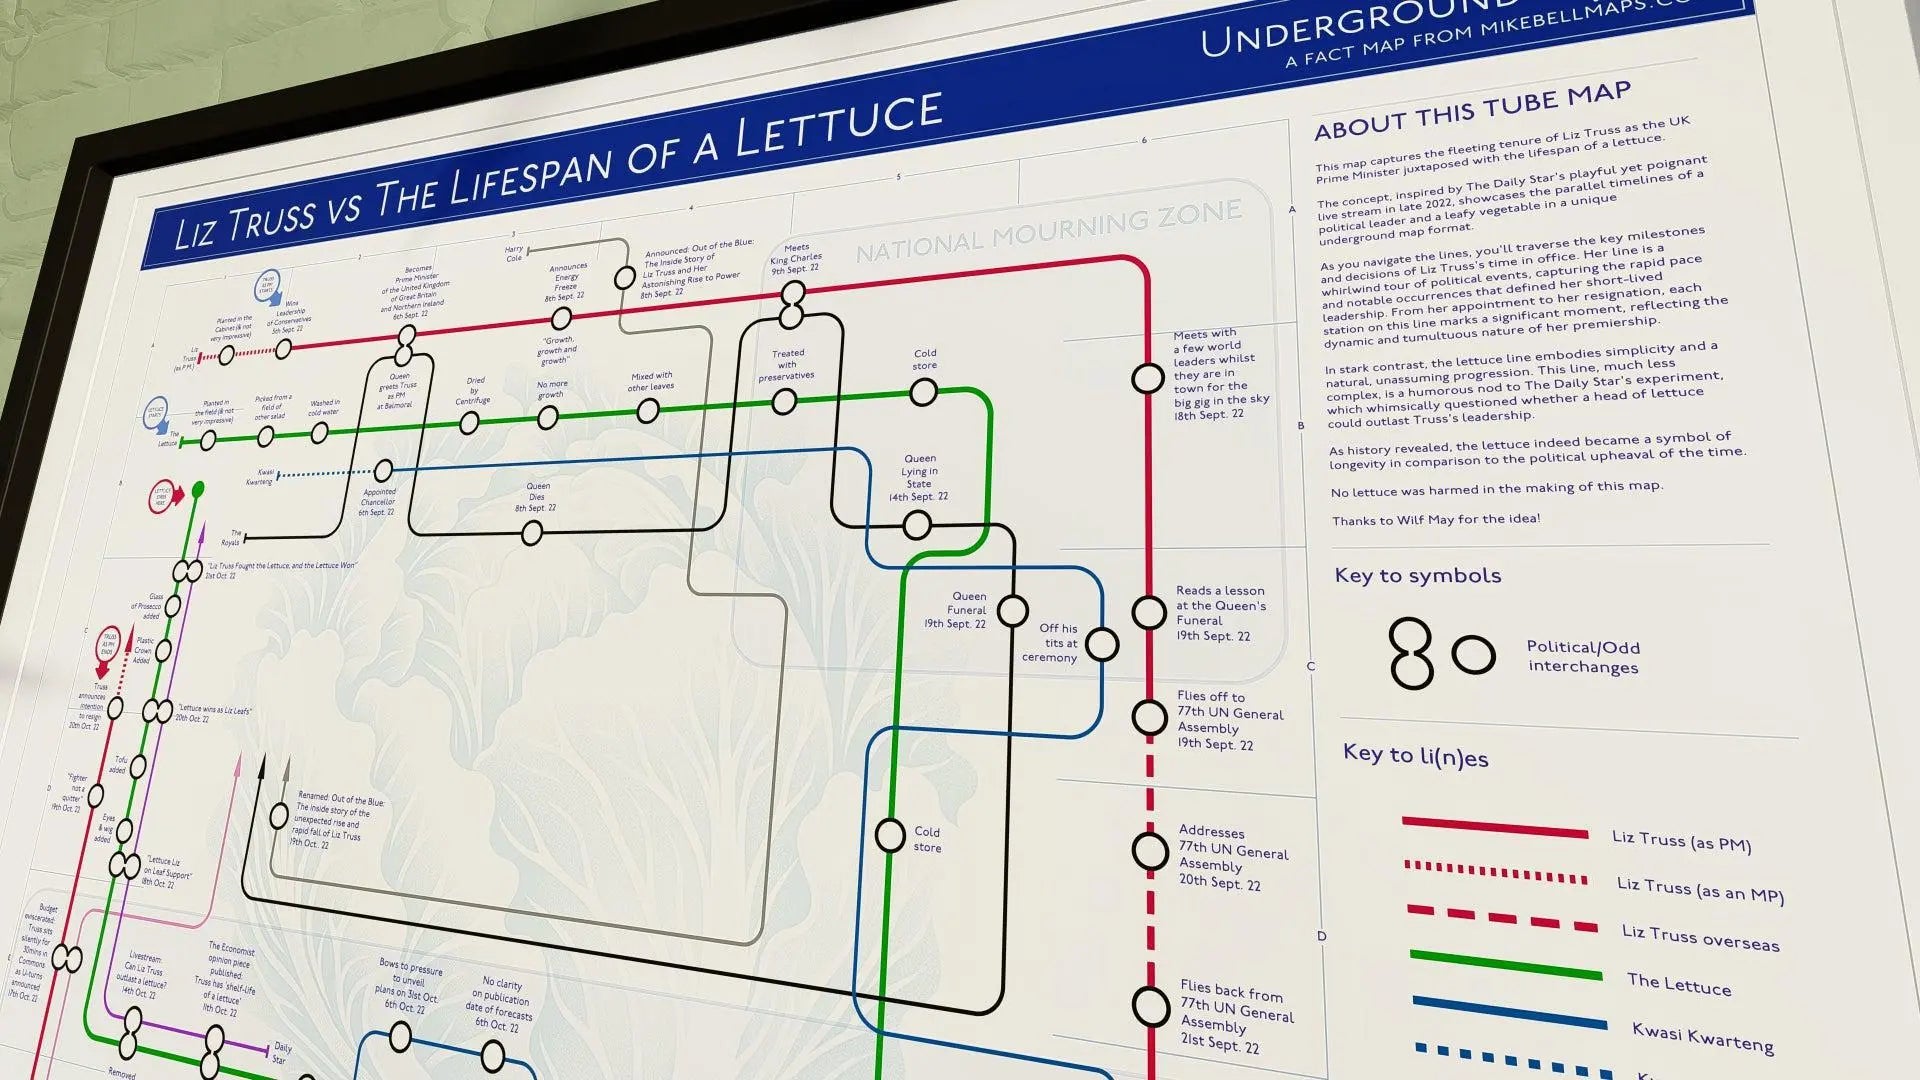 UNDERGROUND
A FACT MAP FROM MIKEBELLMAPS.CO
LIZ TRUSS VS THE LIFESPAN OF A LETTUCE
1
2
3
4
5
6
A
B
C
D
NATIONAL MOURNING ZONE
TRUSS
AS PM
STARTS
Liz
Truss
(as P.M.)
Planted in the
Cabinet (& not
very impressive)
Wins
Leadership
of Conservatives
5th Sept. 22
Becomes
Prime Minister
of the United Kingdom
of Great Britain
and Northern Ireland
6th Sept. 22
Announces
Energy
Freeze
8th Sept. 22
"Growth,
growth and
growth"
Harry
Cole
Announced: Out of the Blue:
The Inside Story of
Liz Truss and Her
Astonishing Rise to Power
8th Sept. 22
Meets
King Charles
9th Sept. 22
Meets with
a few world
leaders whilst
they are in
town for the
big gig in the sky
18th Sept. 22
Reads a lesson
at the Queen's
Funeral
19th Sept. 22
Flies off to
77th UN General
Assembly
19th Sept. 22
Addresses
77th UN General
Assembly
20th Sept. 22
Flies back from
77th UN General
Assembly
21st Sept. 22
LETTUCE
STARTS
The
Lettuce
Planted in
the field (& not
very impressive)
Picked from a
field of
other salad
Washed in
cold water
Queen
greets Truss
as PM
at Balmoral
Dried
by
Centrifuge
No more
growth
Mixed with
other leaves
Treated
with
preservatives
Cold
store
Kwasi
Kwarteng
Appointed
Chancellor
6th Sept. 22
Queen
Dies
8th Sept. 22
The
Royals
Queen
Lying in
State
14th Sept. 22
Queen
Funeral
19th Sept. 22
Off his
tits at
ceremony
Cold
store
LETTUCE
ENDS
HERE
"Liz Truss Fought the Lettuce, and the Lettuce Won"
21st Oct. 22
Glass
of Prosecco
added
Plastic
Crown
Added
TRUSS
AS PM
ENDS
Truss
announces
intention
to resign
20th Oct. 22
"Lettuce wins as Liz Leafs"
20th Oct. 22
Tofu
added
"Fighter
not a
quitter"
19th Oct. 22
Eyes
& wig
added
"Lettuce Liz
on Leaf Support"
18th Oct. 22
Renamed: Out of the Blue:
The inside story of the
unexpected rise and
rapid fall of Liz Truss
19th Oct. 22
Budget
eviscerated:
Truss sits
silently for
30mins in
Commons
as U-turns
announced
17th Oct. 22
Livestream:
Can Liz Truss
outlast a lettuce?
14th Oct. 22
The Economist
opinion piece
published:
Truss has 'shelf-life
of a lettuce'
11th Oct. 22
Daily
Star
Removed
Bows to pressure
to unveil
plans on 31st Oct.
6th Oct. 22
No clarity
on publication
date of forecasts
6th Oct. 22
ABOUT THIS TUBE MAP
This map captures the fleeting tenure of Liz Truss as the UK
Prime Minister juxtaposed with the lifespan of a lettuce.
The concept, inspired by The Daily Star's playful yet poignant
live stream in late 2022, showcases the parallel timelines of a
political leader and a leafy vegetable in a unique
underground map format.
As you navigate the lines, you'll traverse the key milestones
and decisions of Liz Truss's time in office. Her line is a
whirlwind tour of political events, capturing the rapid pace
and notable occurrences that defined her short-lived
leadership. From her appointment to her resignation, each
station on this line marks a significant moment, reflecting the
dynamic and tumultuous nature of her premiership.
In stark contrast, the lettuce line embodies simplicity and a
natural, unassuming progression. This line, much less
complex, is a humorous nod to The Daily Star's experiment,
which whimsically questioned whether a head of lettuce
could outlast Truss's leadership.
As history revealed, the lettuce indeed became a symbol of
longevity in comparison to the political upheaval of the time.
No lettuce was harmed in the making of this map.
Thanks to Wilf May for the idea!
Key to symbols
Political/Odd
interchanges
Key to li(n)es
Liz Truss (as PM)
Liz Truss (as an MP)
Liz Truss overseas
The Lettuce
Kwasi Kwarteng